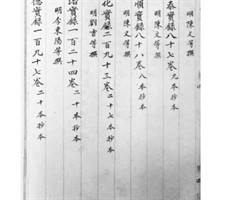 明陳文等撰
泰實錄八十七卷九本抄本
明陳文等撰
順實錄八十八卷八本抄本
明陳文等撰
化實錄二百九十三卷二十本抄本
明劉吉等撰
實錄一百二十四卷二十本抄本
明李東陽等撰
德實錄一百九十七卷二十本抄本